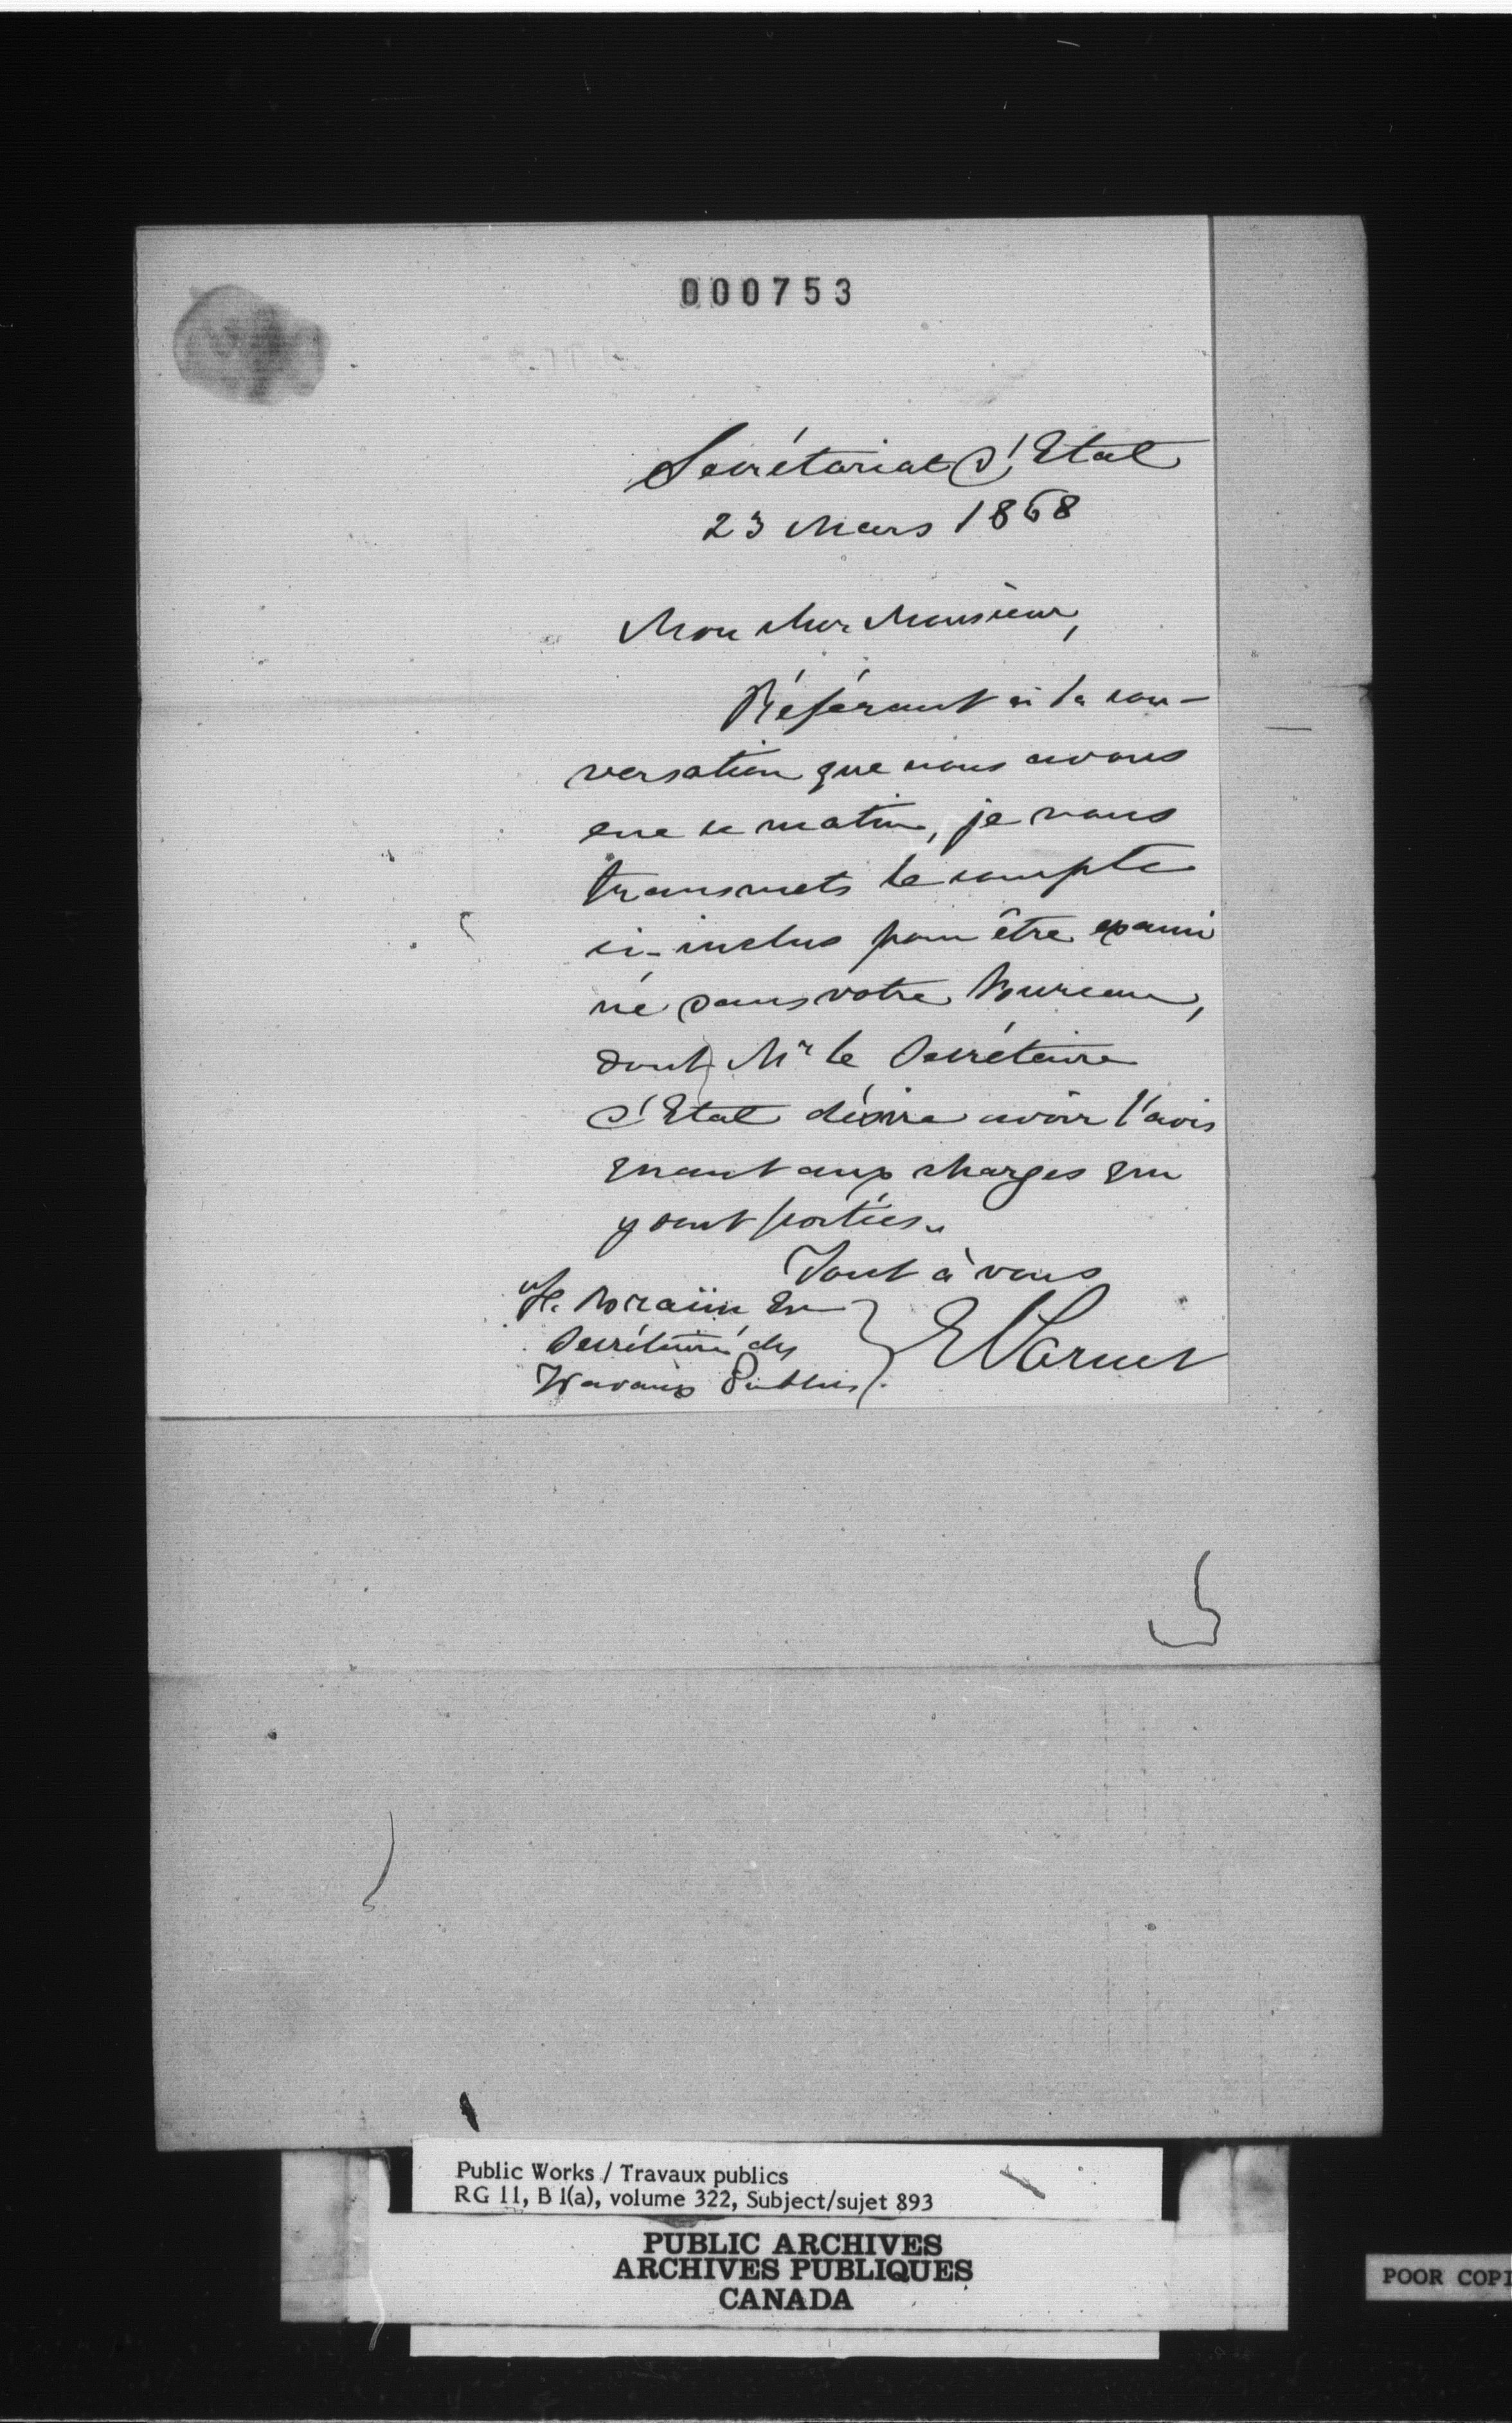 000753
Secrétariat d'Etat
23 Mars 1868
Mon cher Monsieur,
Référant à la con-
versation que nous avons
eue ce matin, je vous
transmets le compte
ci-inclus pour être exami
né dans votre bureau,
dont Mr le Secrétaire
d'Etat désire avoir l'avis
quant aux charges qui
y sont portées.
Tout à vous
F. Braün Er
Secrétaire des
Travaux Publics.
E Parent
Public Works / Travaux publics
RG 11, B 1(a), volume 322, Subject/sujet 893
PUBLIC ARCHIVES
ARCHIVES PUBLIQUES
CANADA
POOR COPI